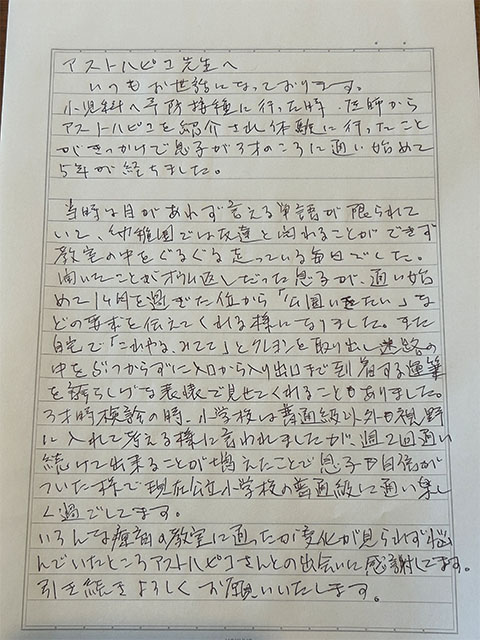 アストハピコ先生へ
いつもお世話になっております。
小児科へ予防接種に行った時、医師から
アストハピコを紹介され体験に行ったこと
がきっかけで息子が3才のころに通い始めて
5年が経ちました。
当時は目があわず言える単語が限られて
いて、幼稚園では友達と関わることができず
教室の中をぐるぐる走っている毎日でした。
聞いたことがオウム返しだった息子が、通い始
めて1ヶ月を過ぎた位から「公園いきたい」な
どの要求を伝えてくれる様になりました。また
自宅で「これやる、みてて」とクレヨンを取り出し迷路の
中をぶつからずに入口から出口まで到着する運筆
を誇らしげな表情で見せてくれることもありました。
3才時検診の時、小学校は普通級以外も視野
に入れて考える様に言われましたが、週2回通い
続けて出来ることが増えたことで息子も自信が
ついた様で現在公立小学校の普通級に通い楽し
く過ごしてます。
いろんな療育の教室に通ったが変化が見られず悩
んでいたところアストハピコさんとの出会いに感謝してます。
引き続きよろしくお願いいたします。